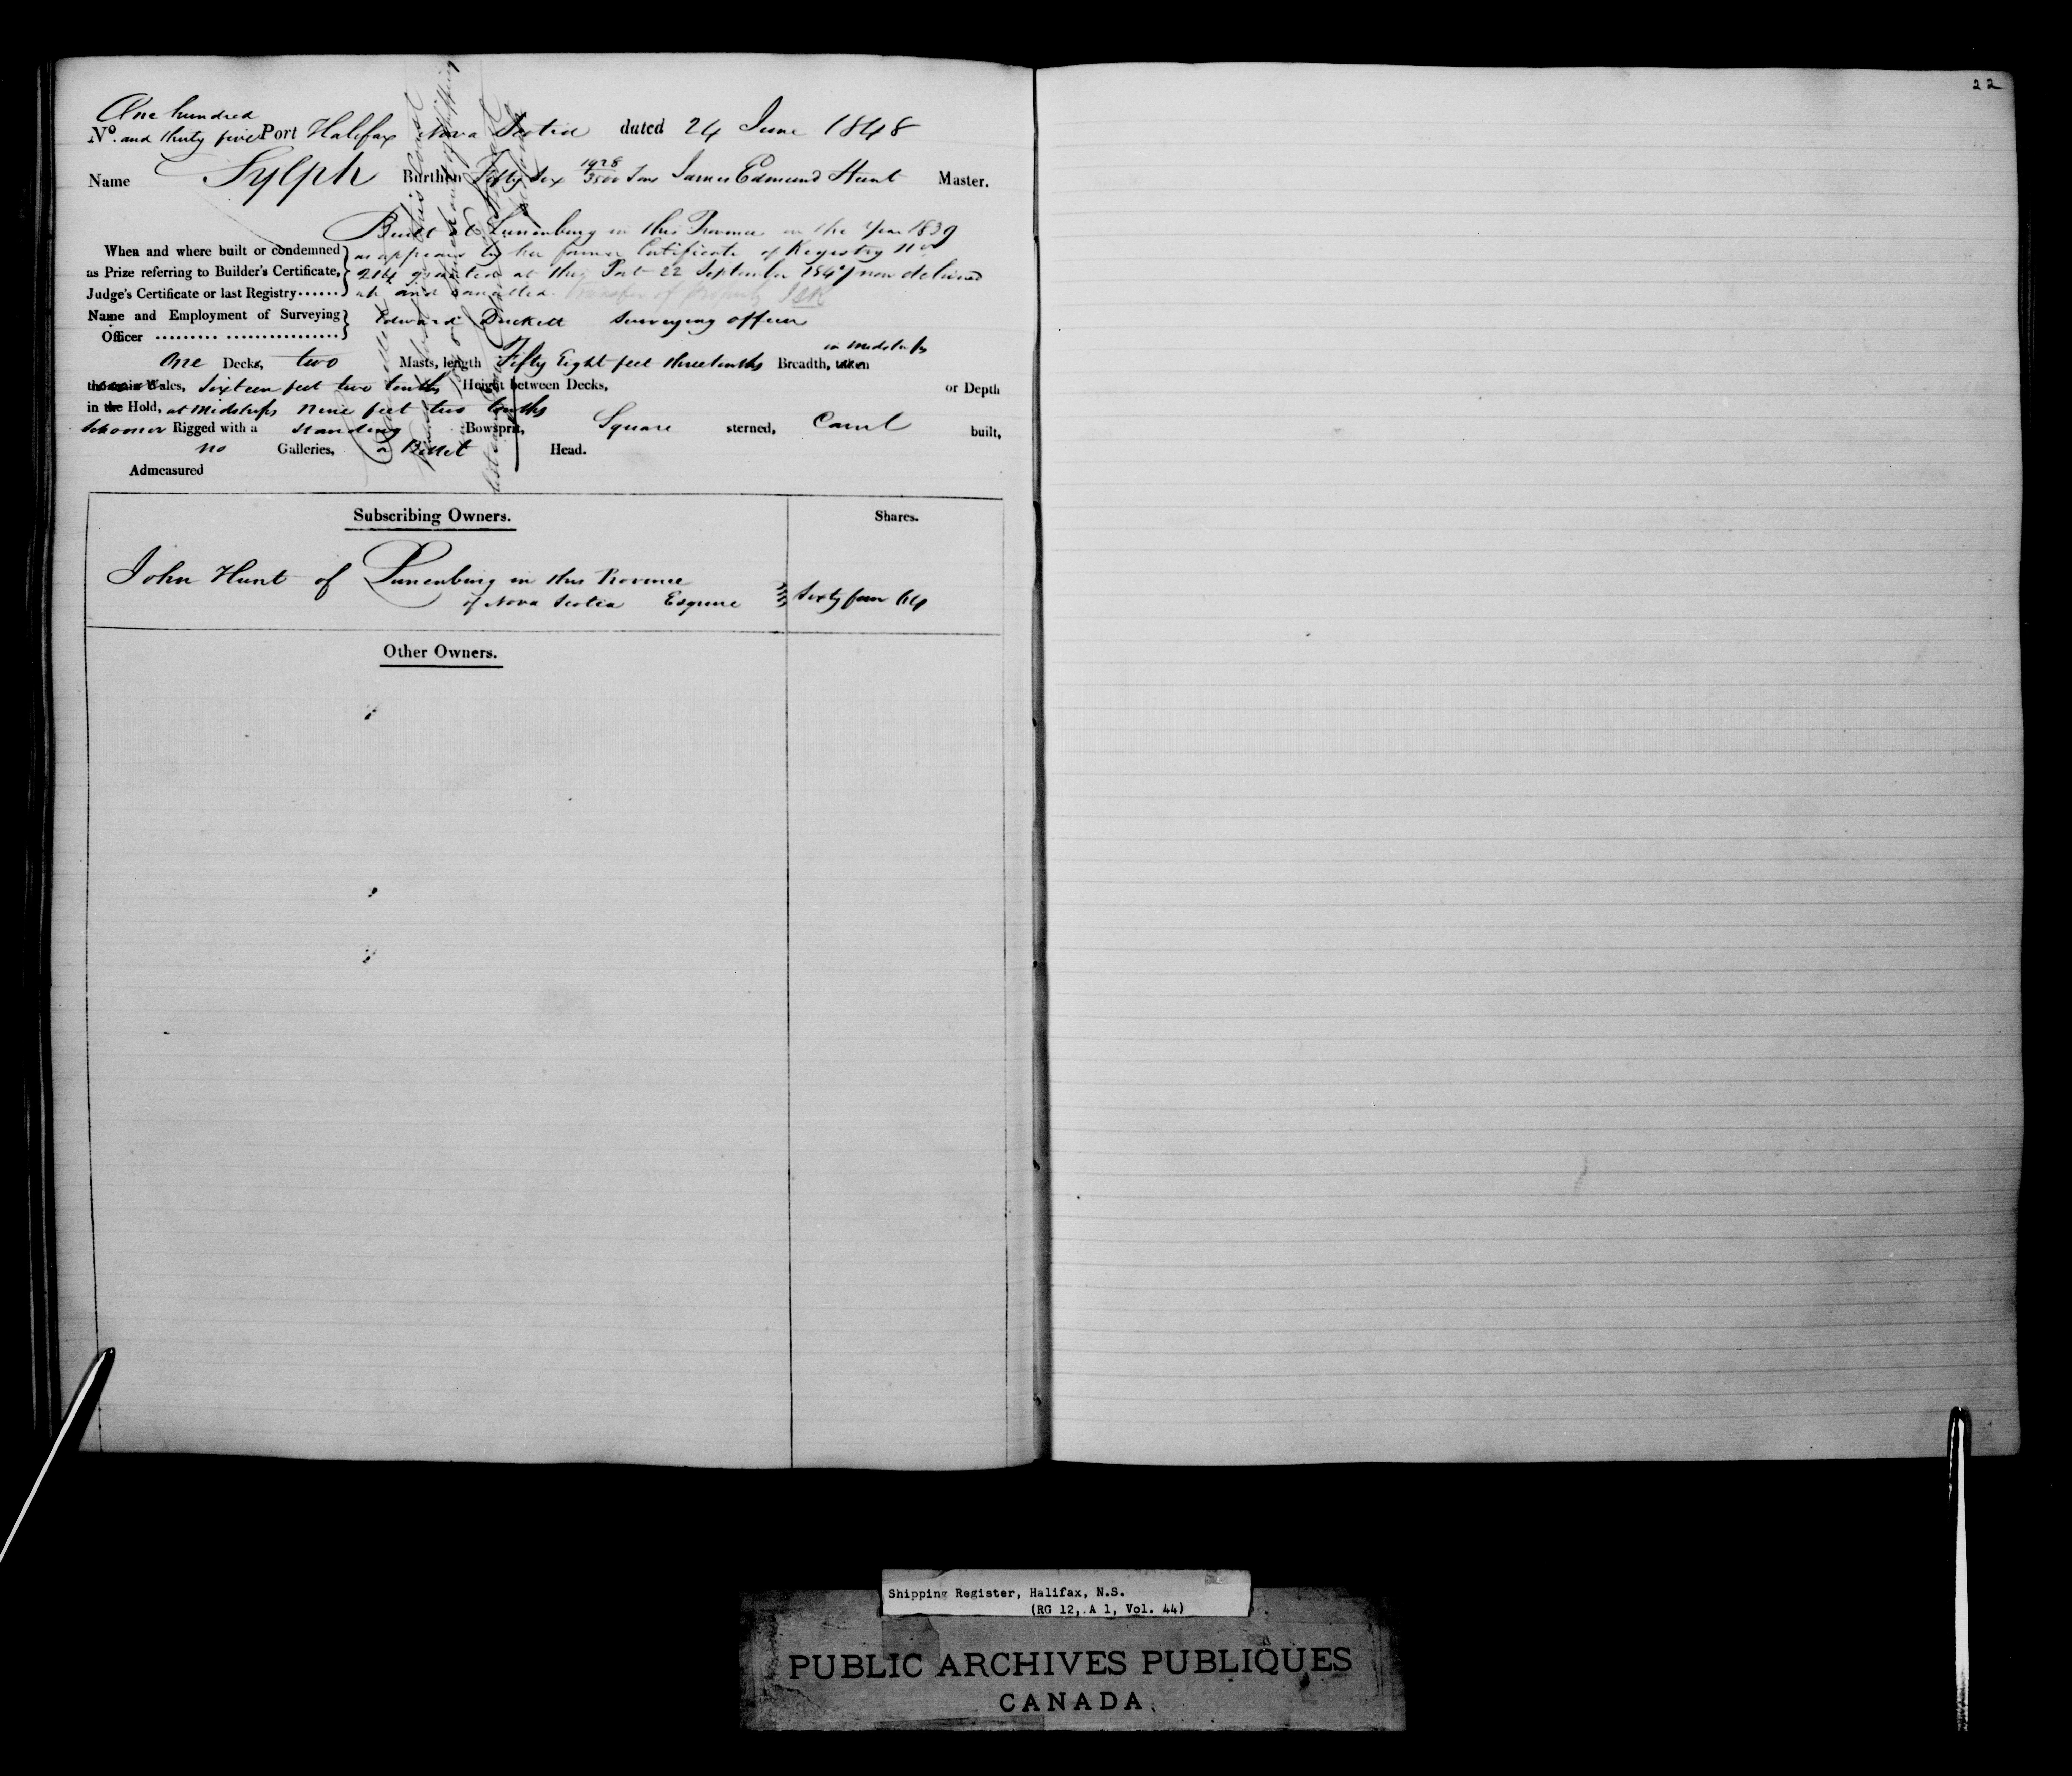 22
One hundred
No. and thirty five Port Halifax Nova Scotia dated 24 June 1848
Name Sylph Burthen Fifty Six 1928/3500 Tons James Edmund Hunt Master.
Built at Lunenburg in this Province in the Year 1839
When and where built or condemned as appears by her former Certificate of Registry No
as Prize referring to Builder's Certificate, 214 granted at this Port 22 September 1847 now delivered
Judge's Certificate or last Registry...... up and cancelled. Transfer of property
Name and Employment of Surveying Edward Duckett Surveying officer
Officer ......... .................
in Midships
One Decks, two Masts, length Fifty Eight feet three tenths Breadth, taken
the main Wales, Sixteen feet two tenths Height between Decks, or Depth
in the Hold, at Midships Nine feet two tenths
Schooner Rigged with a standing Bowsprit, Square sterned, Carvel built,
no Galleries, a Billet Head.
Admeasured
Subscribing Owners. Shares.
John Hunt of Lunenburg in this Province
of Nova Scotia Esquire Sixty four 64
Other Owners.
Shipping Register, Halifax, N.S.
(RG 12, A 1, Vol. 44)
PUBLIC ARCHIVES PUBLIQUES
CANADA